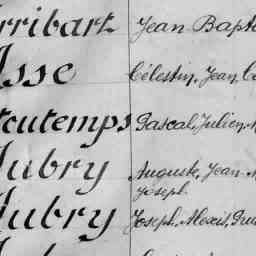 rribart Jean Bapt
Asse Célestin, Jean
toutemps Pascal, Julien,
Aubry Auguste, Jean
Joseph
Aubry Joseph, Alexis,